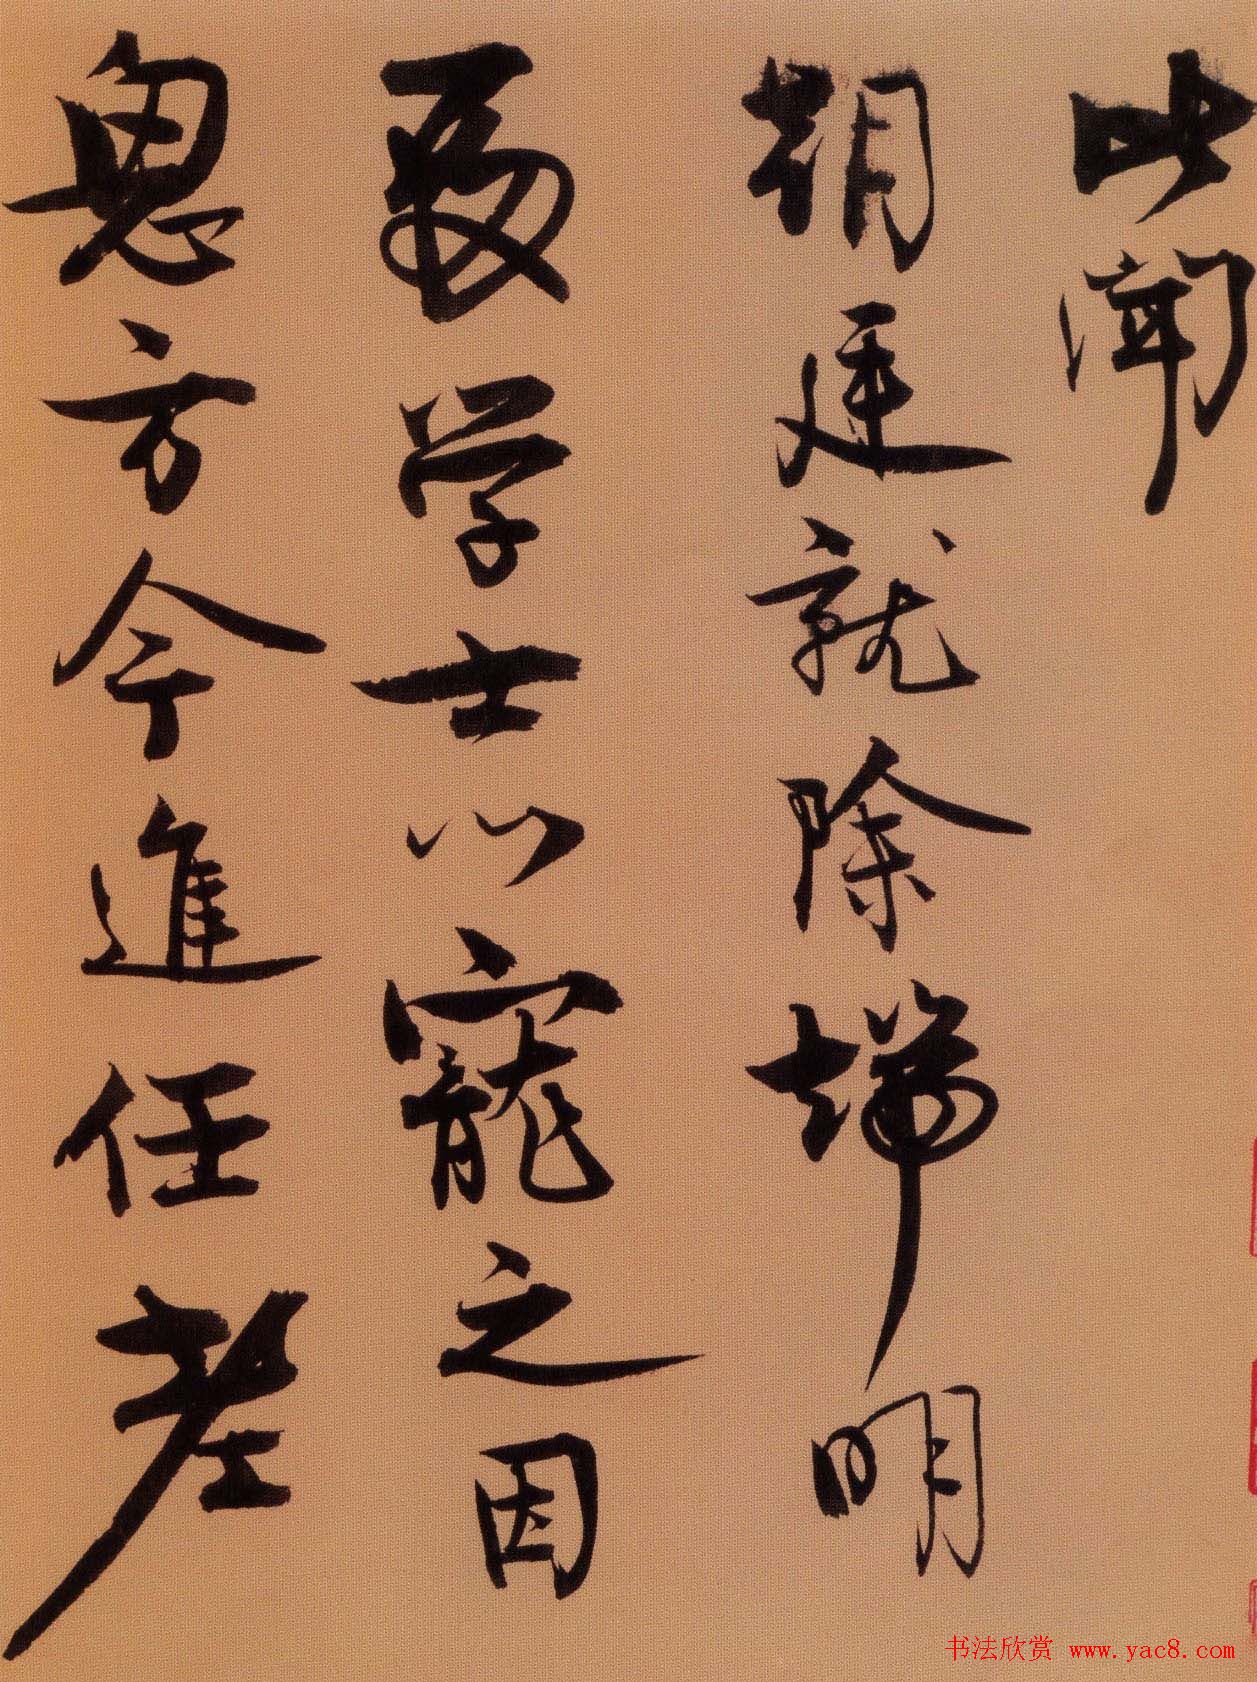 此聞
朝廷就除端明
殿学士以寵之因
思方今進任
书法欣赏 www.yac8.com